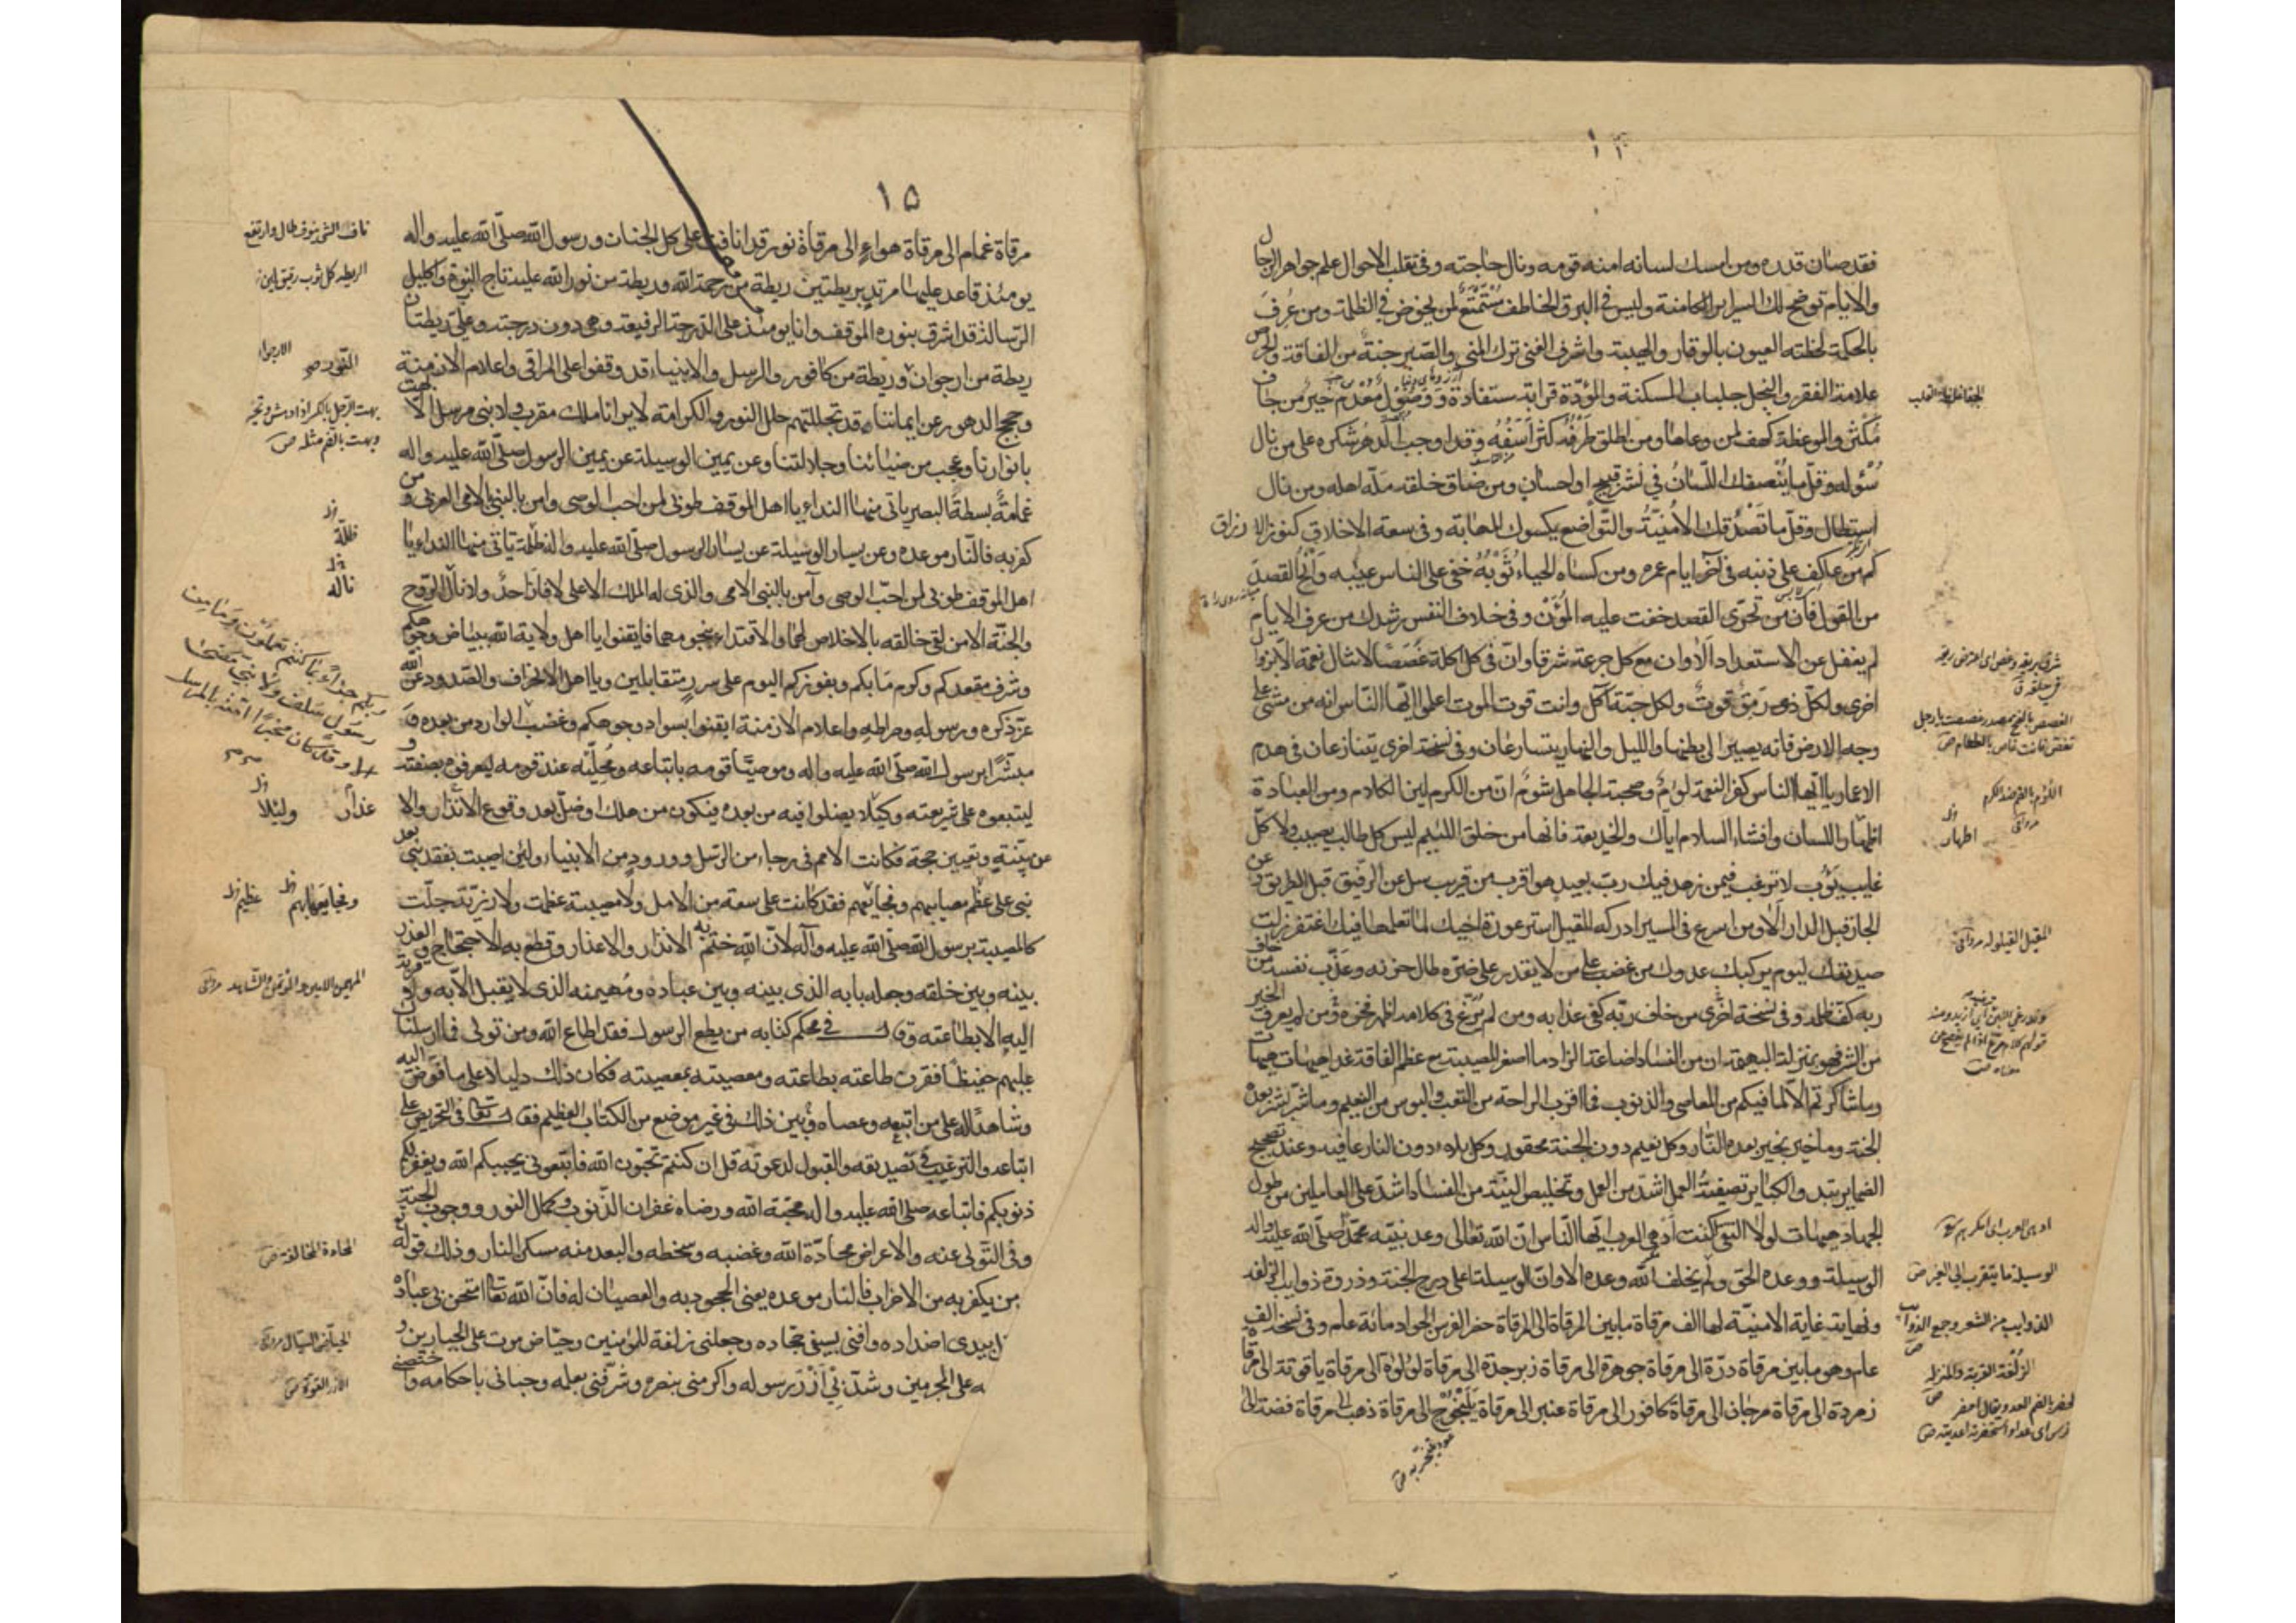 فقد صان قدره ومن امسك لسانه امنه قومه ونال حاجته وفي تقلب الاحوال علم جواهر الرجال
والايام توضح لك السراير الكامنة وليس في البرق الخاطف مُسْتَمْتَعٌ لمن يخوض في الظلمة ومن عُرِفَ
بالحكمة لحظته العيون بالوقار والهيبة واشرف الغنى ترك المنى والصبر جنة من الفاقة والحرص
علامة الفقر والبخل جلباب المسكنة والمودّة قرابة مستفادة ووصول معدم خير من جاف
مكثر والموعظة كهف لمن وعاها ومن اطلق طَرْفَه كثر اَسَفُهُ وقد اوجب الدهر شكره على من نال
سُؤله وقلّ ما يُنْصِفك اللّسانُ في نشر قبيح او احسان ومن ضاق خلقه مَلّه اهله ومن نال
استطال وقلّ ما تَصْدُقك الاُمنيّةُ والتّواضع يكسوك المهابة وفي سعة الاخلاق كنوز الارزاق
كم من عاكف على ذنبه في آخر ايام عمره ومن كساه الحياء ثَوْبُهُ خفي على الناس عيبه وانح القصد
من القول فان من تحرّى القصد خفت عليه المؤن وفي خلاف النفس رشدك من عرف الايام
لم يغفل عن الاستعداد الا وان مع كل جرعة شرقا وان في كل اكلة غصصا لا تنال نعمة الا بزوال
اخرى ولكلّ ذي رَمَقٍ قوتٌ ولكل حبّة آكل وانت قوت الموت اعلموا ايّها النّاس انه من مشى على
وجه الارض فانه يصير الى بطنها والليل والنهار يتسارعان وفي نسخة اخرى يتنازعان في هدم
الاعمار يا ايّها الناس كفر النعمة لؤمٌ وصحبة الجاهل شومٌ انّ من الكرم لين الكلام ومن العبادة
اظهار اللسان وافشاء السلام اياك والخديعة فانها من خلق اللئيم ليس كل طالب يصيب ولا كلّ
غايب يَؤُب لا ترغب فيمن زهد فيك ربّ بعيد هو اقرب من قريب سل عن الرّفيق قبل الطريق وعن
الجار قبل الدار الا ومن اسرع في المسير ادركه المقيل استر عورة اخيك لما تعلمها فيك اغتفر زلت
صديقك ليوم يركبك عدوك من غضب على من لا يقدر على ضرّه طال حزنه وعذّب نفسه من خاف
ربه كفّ ظلمه وفي نسخة اخرى من خاف ربّه كفى عذابه ومن لم يُرَغ في كلامه اظهر فخره ومن لم يعرف الخير
من الشر فهو بمنزلة البهيمة ان من الفساد اضاعة الزاد ما اصغر المصيبة مع عظم الفاقة غدا هيهات هيهات
وما تناكرتم الّا لما فيكم من المعاصي والذنوب فما اقرب الراحة من التعب والبوس من النعيم وما شر بشرّ بعده
الجنة وما خير بخير بعده النّار وكل نعيم دون الجنة محقور وكل بلاء دون النار عافية وعند تصحيح
الضماير تبدو الكباير تصفيةُ العمل اشدّ من العمل وتخليص النيّة من الفساد اشدّ على العاملين من طول
الجهاد هيهات لولا التقى لكنت ادهى العرب ايّها النّاس انّ الله تعالى وعد نبيّه محمّدا صلّى الله عليه واله
الوسيلة ووعده الحق ولم يخلف الله وعده الا وان الوسيلة على درج الجنة وذروة ذوايب الزلفة
ونهاية غاية الامنيّة لها الف مرقاة ما بين المرقاة الى المرقاة حضر الفرس الجواد مائة عام وفي نسخة الف
عام وهو ما بين مرقاة درّة الى مرقاة جوهرة الى مرقاة زبرجدة الى مرقاة لؤلؤة الى مرقاة ياقوتة الى مرقاة
زمردة الى مرقاة مرجان الى مرقاة كافور الى مرقاة عنبر الى مرقاة يلنجوج الى مرقاة ذهب الى مرقاة فضة الى
اللؤم بالضم ضد الكرم
اظهار
المقيل القيلولة
الوسيلة ما يتقرب به الى الغير ص
الزلفة القربة والمنزلة
١٥
مرقاة غمام الى مرقاة هواء الى مرقاة نور قد انافت على كل الجنان ورسول الله صلّى الله عليه واله
يومئذ قاعد عليها مرتد بريطتين ريطة من رحمة الله وريطة من نور الله عليه تاج النبوة واكليل
الرّسالة قد اشرق بنوره الموقف وانا يومئذ على الدّرجة الرفيعة وهي دون درجته وعليّ ريطتان
ريطة من ارجوان وريطة من كافور والرسل والانبياء قد وقفوا على المراقي واعلام الازمنة
وحجج الدهور عن ايماننا وقد تجللتهم حلل النور والكرامة لا يرانا ملك مقرب ولا نبي مرسل الا بهت
بانوارنا وعجب من ضيائنا وجلالتنا وعن يمين الوسيلة عن يمين الرسول صلّى الله عليه واله
غمامةٌ بسطةَ البصر ياتي منها النداء يا اهل الموقف طوبى لمن احب الوصي وامن بالنبي الامي العربي ومن
كفر به فالنّار موعده وعن يسار الوسيلة عن يسار الرسول صلّى الله عليه واله ظلمة ياتي منها النداء يا
اهل الموقف طوبى لمن احبّ الوصي وآمن بالنبي الامي والذي له الملك الاعلى لا فاز احدٌ ولا نال الرّوح
والجنّة الا من لقى خالقه بالاخلاص لهما والاقتداء بنجومهما فايقنوا يا اهل ولاية الله ببياض وجوهكم
وشرف مقعدكم وكرم مَآبكم وبفوزكم اليوم على سررٍ متقابلين ويا اهل الانحراف والصّدود عن الله
عزّ ذكره ورسوله وصراطه واعلام الازمنة ايقنوا بسواد وجوهكم وغضب
مبشّرا برسول الله صلّى الله عليه واله وموصيّا قومه باتباعه ومُحلّيه عند قومه ليعرفوه بصفته
ليتبعوه على شريعته وكيلا يضلوا فيه من بعده فيكون من هلك او ضلّ بعد وقوع الانذار والاعذار
عن بيّنة وتعيين حجة فكانت الامم في رجاء من الرّسل وورود من الانبياء ولئن اصيبت بفقد نبي بعد
نبي على عظم مصايبهم وفجايعهم فقد كانت على سعة من الامل ولا مصيبة عظمت ولا رزيّة جلّت
كالمصيبة برسول الله صلّى الله عليه وآله لانّ الله ختم به الانذار والاعذار وقطع به الاحتجاج والعذر
بينه وبين خلقه وجعله بابه الذي بينه وبين عباده ومُهيمنه الذي لا يقبل الّا به ولا قربة
اليه الا بطاعته وقال في محكم كتابه من يطع الرسول فقد اطاع الله ومن تولى فما ارسلناك
عليهم حفيظا فقرن طاعته بطاعته ومعصيته بمعصيته فكان ذلك دليلا على ما فوّض اليه
وشاهدًا له على من اتبعه وعصاه وبين ذلك في غير موضع من الكتاب العظيم فقال تعالى في التحريض على
اتباعه والترغيب في تصديقه والقبول لدعوته قل ان كنتم تحبّون الله فاتّبعوني يحببكم الله ويغفر لكم
ذنوبكم فاتباعه صلى الله عليه واله محبّة الله ورضاه غفران الذّنوب وكمال النور ووجوب الجنة
وفي التّولي عنه والاعراض محادّة الله وغضبه وسخطه والبعد منه مسكن النار وذلك قوله
من يكفر به من الاحزاب فالنار موعده يعني الجحود به والعصيان له فانّ الله تعالى امتحن بي عباده
بيدي اضداده وافنى بسيفي جحاده وجعلني زلفة للمؤمنين وحياض موت على الجبارين و
على المجرمين وشدّ بي اَزْرَ رسوله واكرمني بنصره وشرّفني بعلمه وحباني باحكامه واختصني
ناف الشئ ينوف طال وارتفع
وبهت بالضم مثله ص
ناله
وليئلا
المحادة المخالفة ص
الازر القوة ص